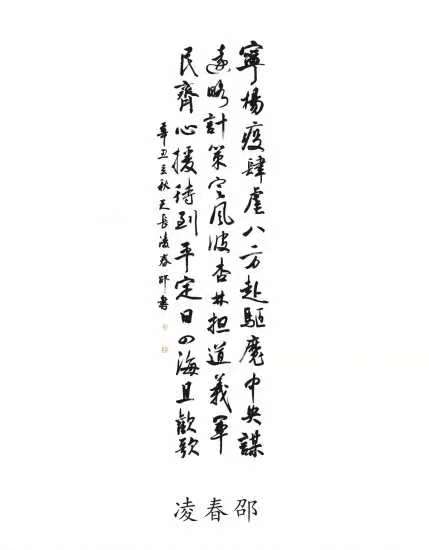 寧楊疫肆虐八方赴驅魔中央謀
遠略計策定風波杏林担道義軍
民齊心援待到平定日四海且歡歌
辛丑立秋天長凌春邵書
凌春邵